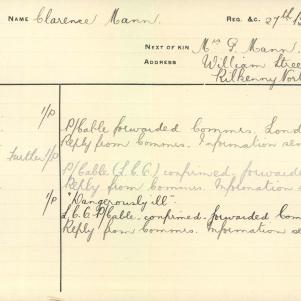 NAME Clarence Mann. REG. &C. 27th/
NEXT OF KIN Mrs G. Mann.
ADDRESS William Stree
Kilkenny Nort
1/p P/Cable forwarded Commrs. Lond
Reply from Commrs. Information se
Further 1/p P/Cable (L.C.C.) confirmed - forwarded
Reply from Commrs. Information se
1/p "Dangerously ill"
L.C.C. P/Cable - confirmed - forwarded Com
Reply from Commrs. Information se